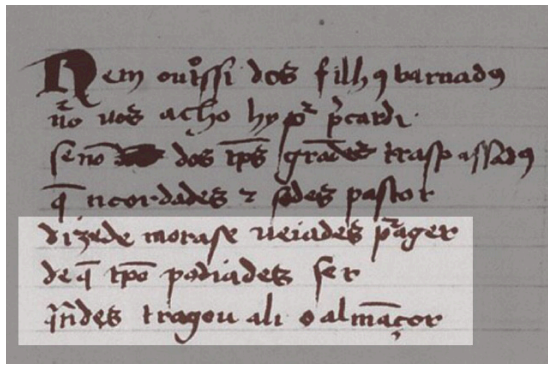 Nem ouossi dos filhꝯ barnadꝯ
nõ uos acho hy pr pcardi
senõ dos tp̃s grãdes trasp assadꝯ
q̃ ncordades ⁊ sodes pastor
dizede morase ueiades prazer
de q̃ tp̃o podiades ser
qñdes tragou ali o almãçor